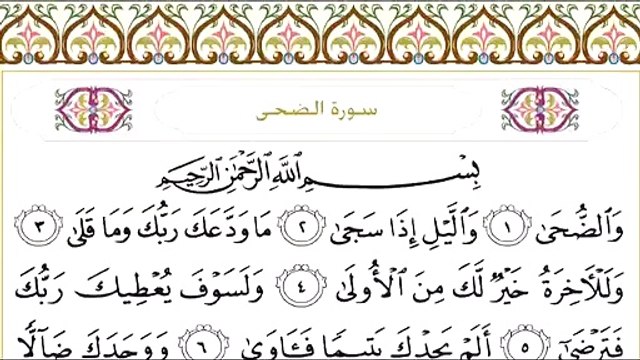 سورة الضحى
بِسْمِ اللَّهِ الرَّحْمَٰنِ الرَّحِيمِ
وَالضُّحَىٰ ١ وَاللَّيْلِ إِذَا سَجَىٰ ٢ مَا وَدَّعَكَ رَبُّكَ وَمَا قَلَىٰ ٣
وَلَلْآخِرَةُ خَيْرٌ لَّكَ مِنَ الْأُولَىٰ ٤ وَلَسَوْفَ يُعْطِيكَ رَبُّكَ
فَتَرْضَىٰ ٥ أَلَمْ يَجِدْكَ يَتِيمًا فَآوَىٰ ٦ وَوَجَدَكَ ضَالًّا